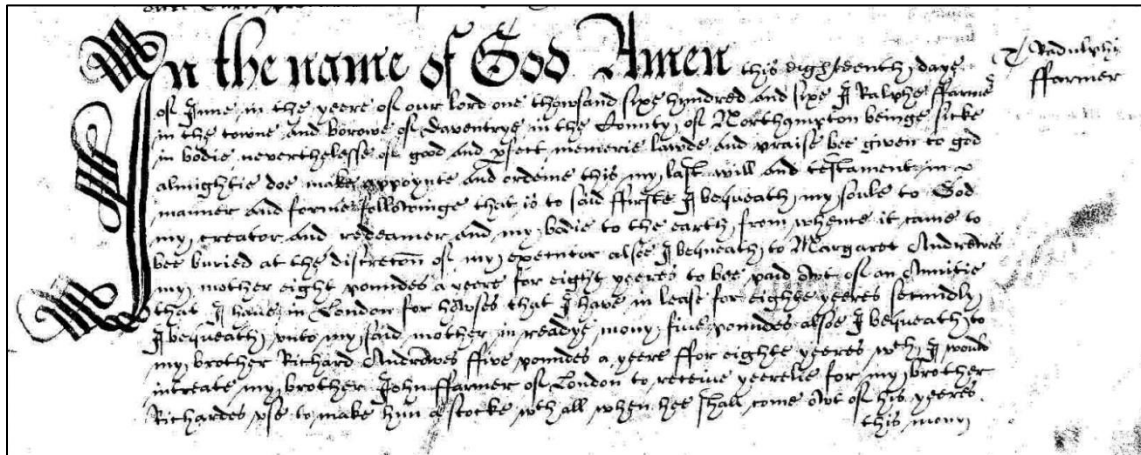 T Radulphi
ffarmer
In the name of God Amen this eighteenth daye
of June in the yeere of our lord one thowsand sixe hundred and sixe I Ralphe ffarmer
in the towne and borowe of Daventrye in the County of Northampton beinge sicke
in bodie neverthelesse of good and pfect memorie lawde and praise bee given to god
almightie doe make appoynte and ordeine this my last will and testament in
manner and forme followinge that is to said ffirste I bequeath my soule to God
my creator and redeamer and my bodie to the earth from whence it came to
bee buried at the discretion of my executor alsoe I bequeath to Margaret Andrewes
my mother eight poundes a yeere for eight yeeres to bee paid owt of an Annitie
that I haue in London for howses that I have in lease for eighte yeeres secundly
I bequeath vnto my said mother in readye mony five poundes alsoe I bequeath to
my brother Richard Andrewes ffive poundes a yeere ffor eighte yeeres wch I would
intreate my brother John ffarmer of London to receive yeerelie for my brother
Richardes vse to make him a stocke wth all when hee shall come owt of his yeeres
this mony